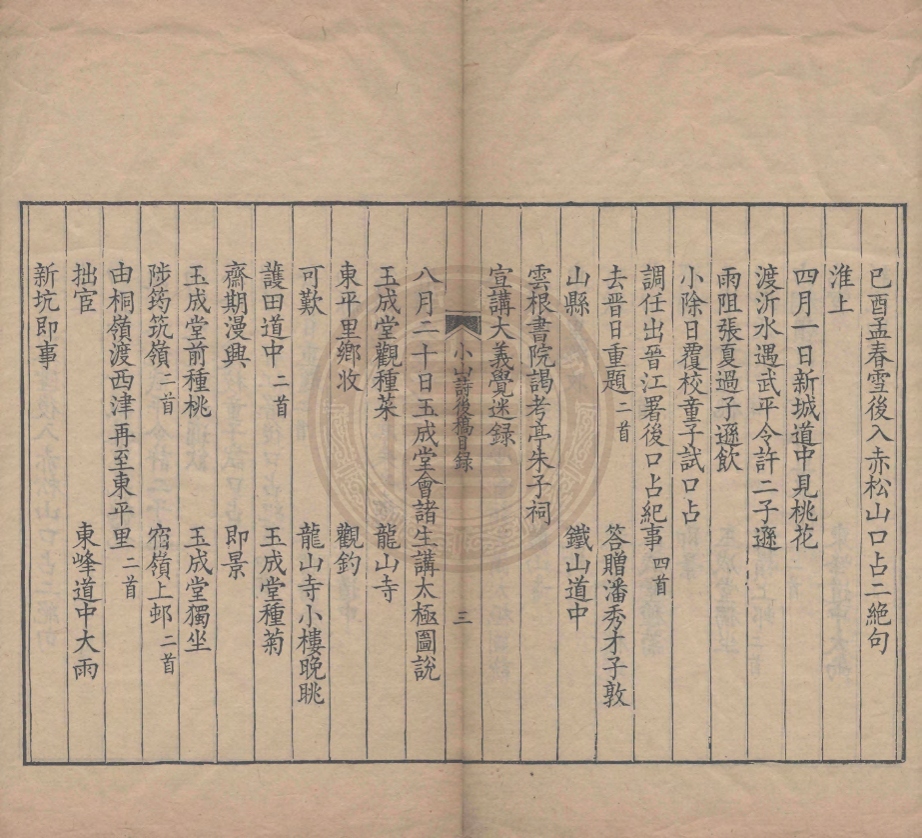 已酉孟春雪後入赤松山口占二絕句
淮上
四月一日新城道中見桃花
渡沂水遇武平令許二子遜
雨阻張夏過子遜飲
小除日覆校童子試口占
調任出晉江署後口占紀事四首
去晉日重題二首 答贈潘秀才子敦
山縣 鐵山道中
雲根書院謁考亭朱子祠
宣講大義覺迷錄
小山詩後稿目錄 三
八月二十日玉成堂會諸生講太極圖說
玉成堂觀種菜 龍山寺
東平里鄉收 觀釣
可歎 龍山寺小樓晚眺
護田道中二首 玉成堂種菊
齋期漫興 即景
玉成堂前種桃 玉成堂獨坐
陟筠筑嶺二首 宿嶺上邨二首
由桐嶺渡西津再至東平里二首
拙宦 東峰道中大雨
新坑即事